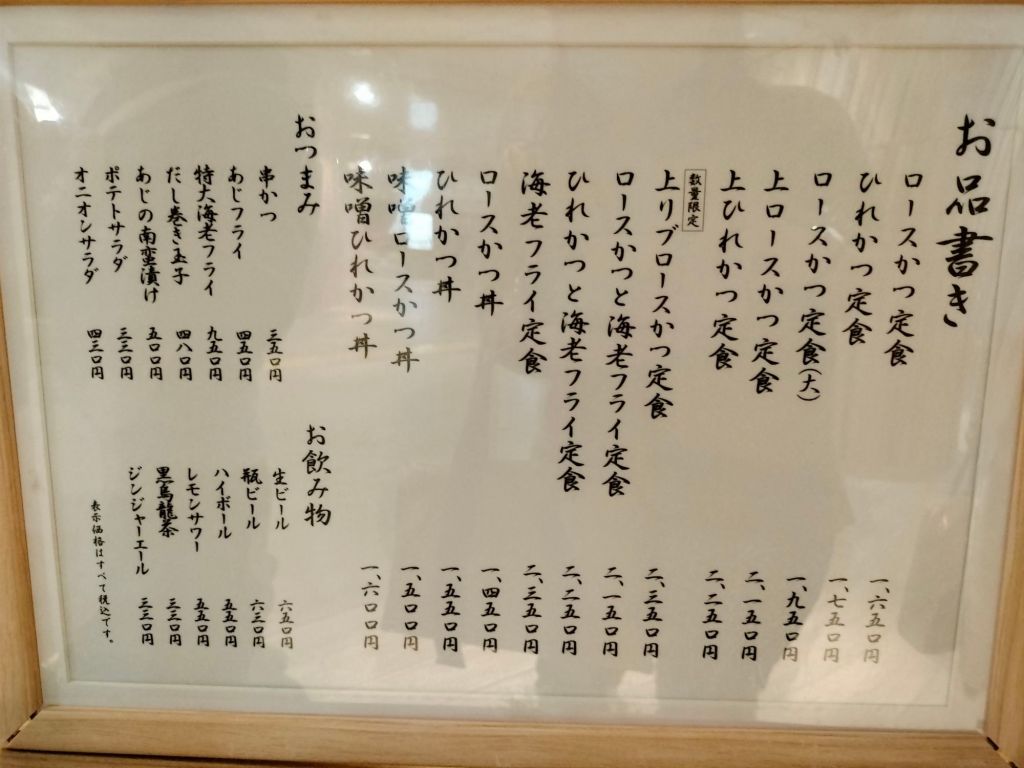 お品書き
ロースかつ定食 一、六五〇円
ひれかつ定食 一、七五〇円
ロースかつ定食(大) 一、九五〇円
上ロースかつ定食 二、一五〇円
上ひれかつ定食 二、二五〇円
数量限定
上リブロースかつ定食 二、三五〇円
ロースかつと海老フライ定食 二、一五〇円
ひれかつと海老フライ定食 二、二五〇円
海老フライ定食 二、三五〇円
ロースかつ丼 一、四五〇円
ひれかつ丼 一、五五〇円
味噌ロースかつ丼 一、五〇〇円
味噌ひれかつ丼 一、六〇〇円
おつまみ
串かつ 三五〇円
あじフライ 四五〇円
特大海老フライ 九五〇円
だし巻き玉子 四八〇円
あじの南蛮漬け 五〇〇円
ポテトサラダ 三三〇円
オニオンサラダ 四三〇円
お飲み物
生ビール 六五〇円
瓶ビール 六三〇円
ハイボール 五五〇円
レモンサワー 五五〇円
黒烏龍茶 三三〇円
ジンジャーエール 三三〇円
表示価格はすべて税込です。